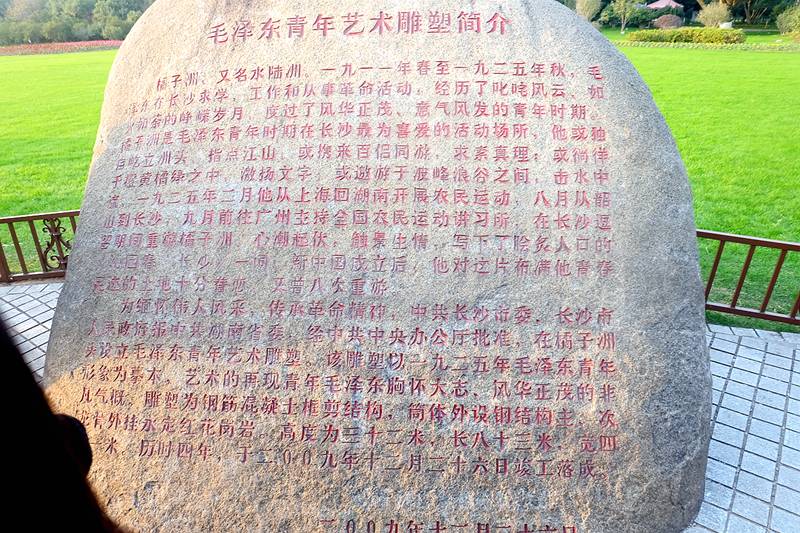 毛泽东青年艺术雕塑简介
橘子洲、又名水陆洲。一九一一年春至一九二五年秋，毛
泽东在长沙求学、工作和从事革命活动，经历了叱咤风云、如
火如荼的峥嵘岁月，度过了风华正茂、意气风发的青年时期。
橘子洲是毛泽东青年时期在长沙最为喜爱的活动场所，他或独
自屹立洲头，指点江山；或携来百侣同游，求索真理；或徜徉
于橙黄橘绿之中，激扬文字；或遨游于渡峰浪谷之间，击水中
流。一九二五年二月他从上海回湖南开展农民运动，八月从韶
山到长沙，九月前往广州主持全国农民运动讲习所，在长沙逗
期间重游橘子洲，心潮起伏，触景生情，写下了脍炙人口的
长沙》一词。新中国成立后，他对这片布满他青春
的土地十分眷恋，又曾八次重游。
为缅怀伟人风采，传承革命精神，中共长沙市委、长沙市
人民政府报中共湖南省委，经中共中央办公厅批准，在橘子洲
头设立毛泽东青年艺术雕塑。该雕塑以一九二五年毛泽东青年
形象为摹本，艺术的再现青年毛泽东胸怀大志、风华正茂的非
凡气概。雕塑为钢筋混凝土框剪结构，筒体外设钢结构主、次
外挂永定红花岗岩。高度为三十二米，长八十三米，宽四
十一米，历时四年，于二00九年十二月二十六日竣工落成。
二00九年十二月二十六日